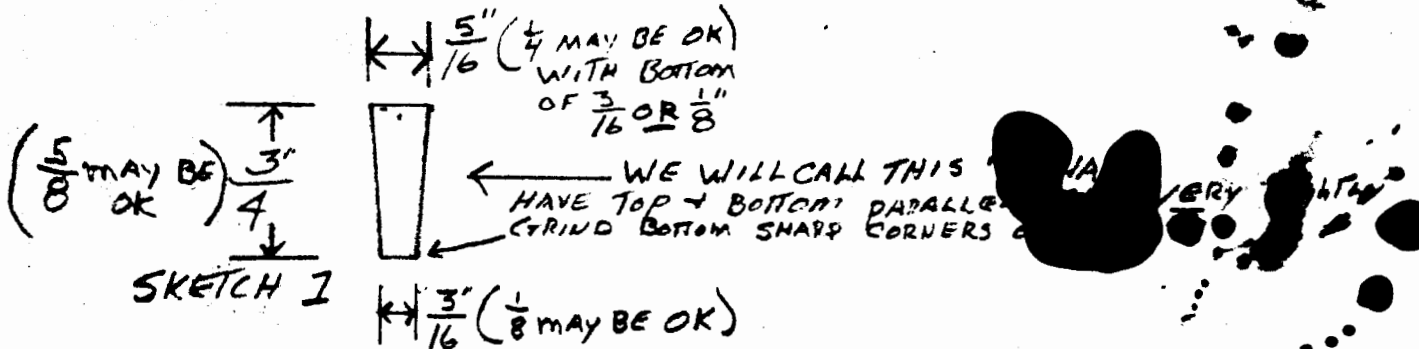 5"/16 (1/4 MAY BE OK)
WITH BOTTOM
OF 3/16 OR 1/8"
(5/8 MAY BE OK) 3"/4
WE WILL CALL THIS
HAVE TOP + BOTTOM
GRIND BOTTOM SHARP CORNERS
VERY
SKETCH 1
3"/16 (1/8 MAY BE OK)